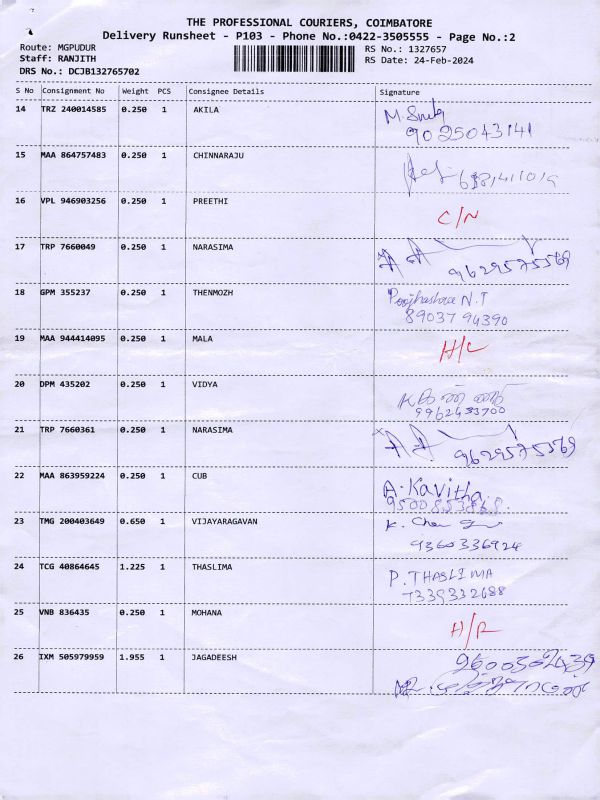 THE PROFESSIONAL COURIERS, COIMBATORE
Delivery Runsheet - P103 - Phone No.:0422-3505555 - Page No.:2
Route: MGPUDUR
RS No.: 1327657
Staff: RANJITH
RS Date: 24-Feb-2024
DRS No.: DCJB132765702
S No Consignment No Weight PCS Consignee Details Signature
14 TRZ 240014585 0.250 1 AKILA
9025043141
15 MAA 864757483 0.250 1 CHINNARAJU
16 VPL 946903256 0.250 1 PREETHI C/N
17 TRP 7660049 0.250 1 NARASIMA
9629575569
18 GPM 355237 0.250 1 THENMOZH N.T
89037 94390
19 MAA 944414095 0.250 1 MALA H/C
20 DPM 435202 0.250 1 VIDYA
9962433700
21 TRP 7660361 0.250 1 NARASIMA
9629575569
22 MAA 863959224 0.250 1 CUB A. Kavitha
23 TMG 200403649 0.650 1 VIJAYARAGAVAN
9360336924
24 TCG 40864645 1.225 1 THASLIMA P. THASLIMA
7339332688
25 VNB 836435 0.250 1 MOHANA H/R
26 IXM 505979959 1.955 1 JAGADEESH